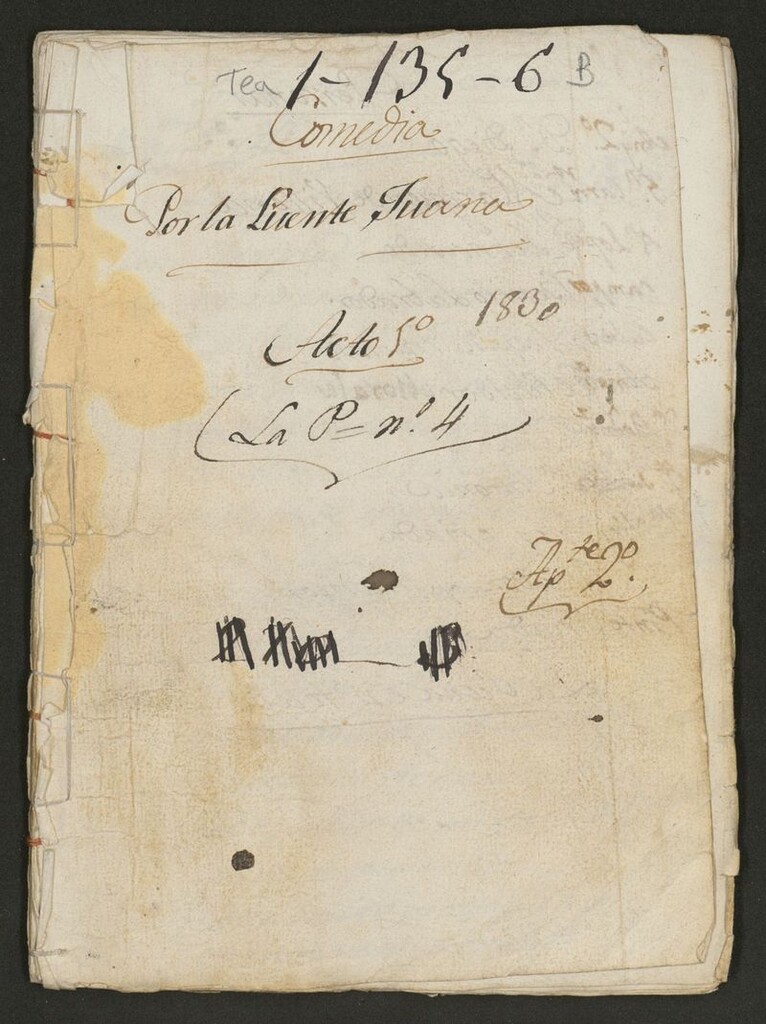 Tea 1-135-6 B
Comedia
Por la Puente Juana
1830
Acto 1º
La P= nº 4
Ap.te 2º